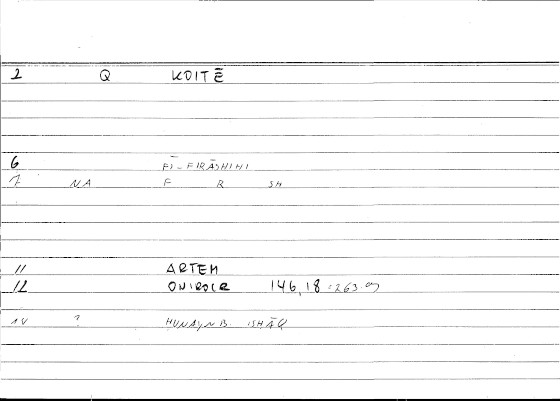 2 Q KOITĒ
6 FĪ-FIRĀSHIHI
7 NA F R SH
11 ARTEM
12 ONIROCR 146,18 = 263.07
14 ? HUNAYN B. ISHĀQ